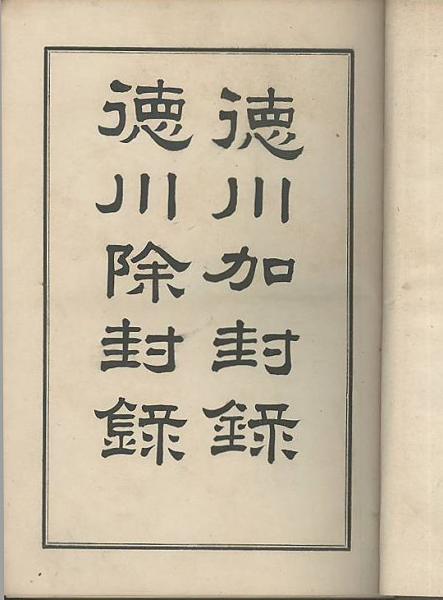 徳川加封録
徳川除封録